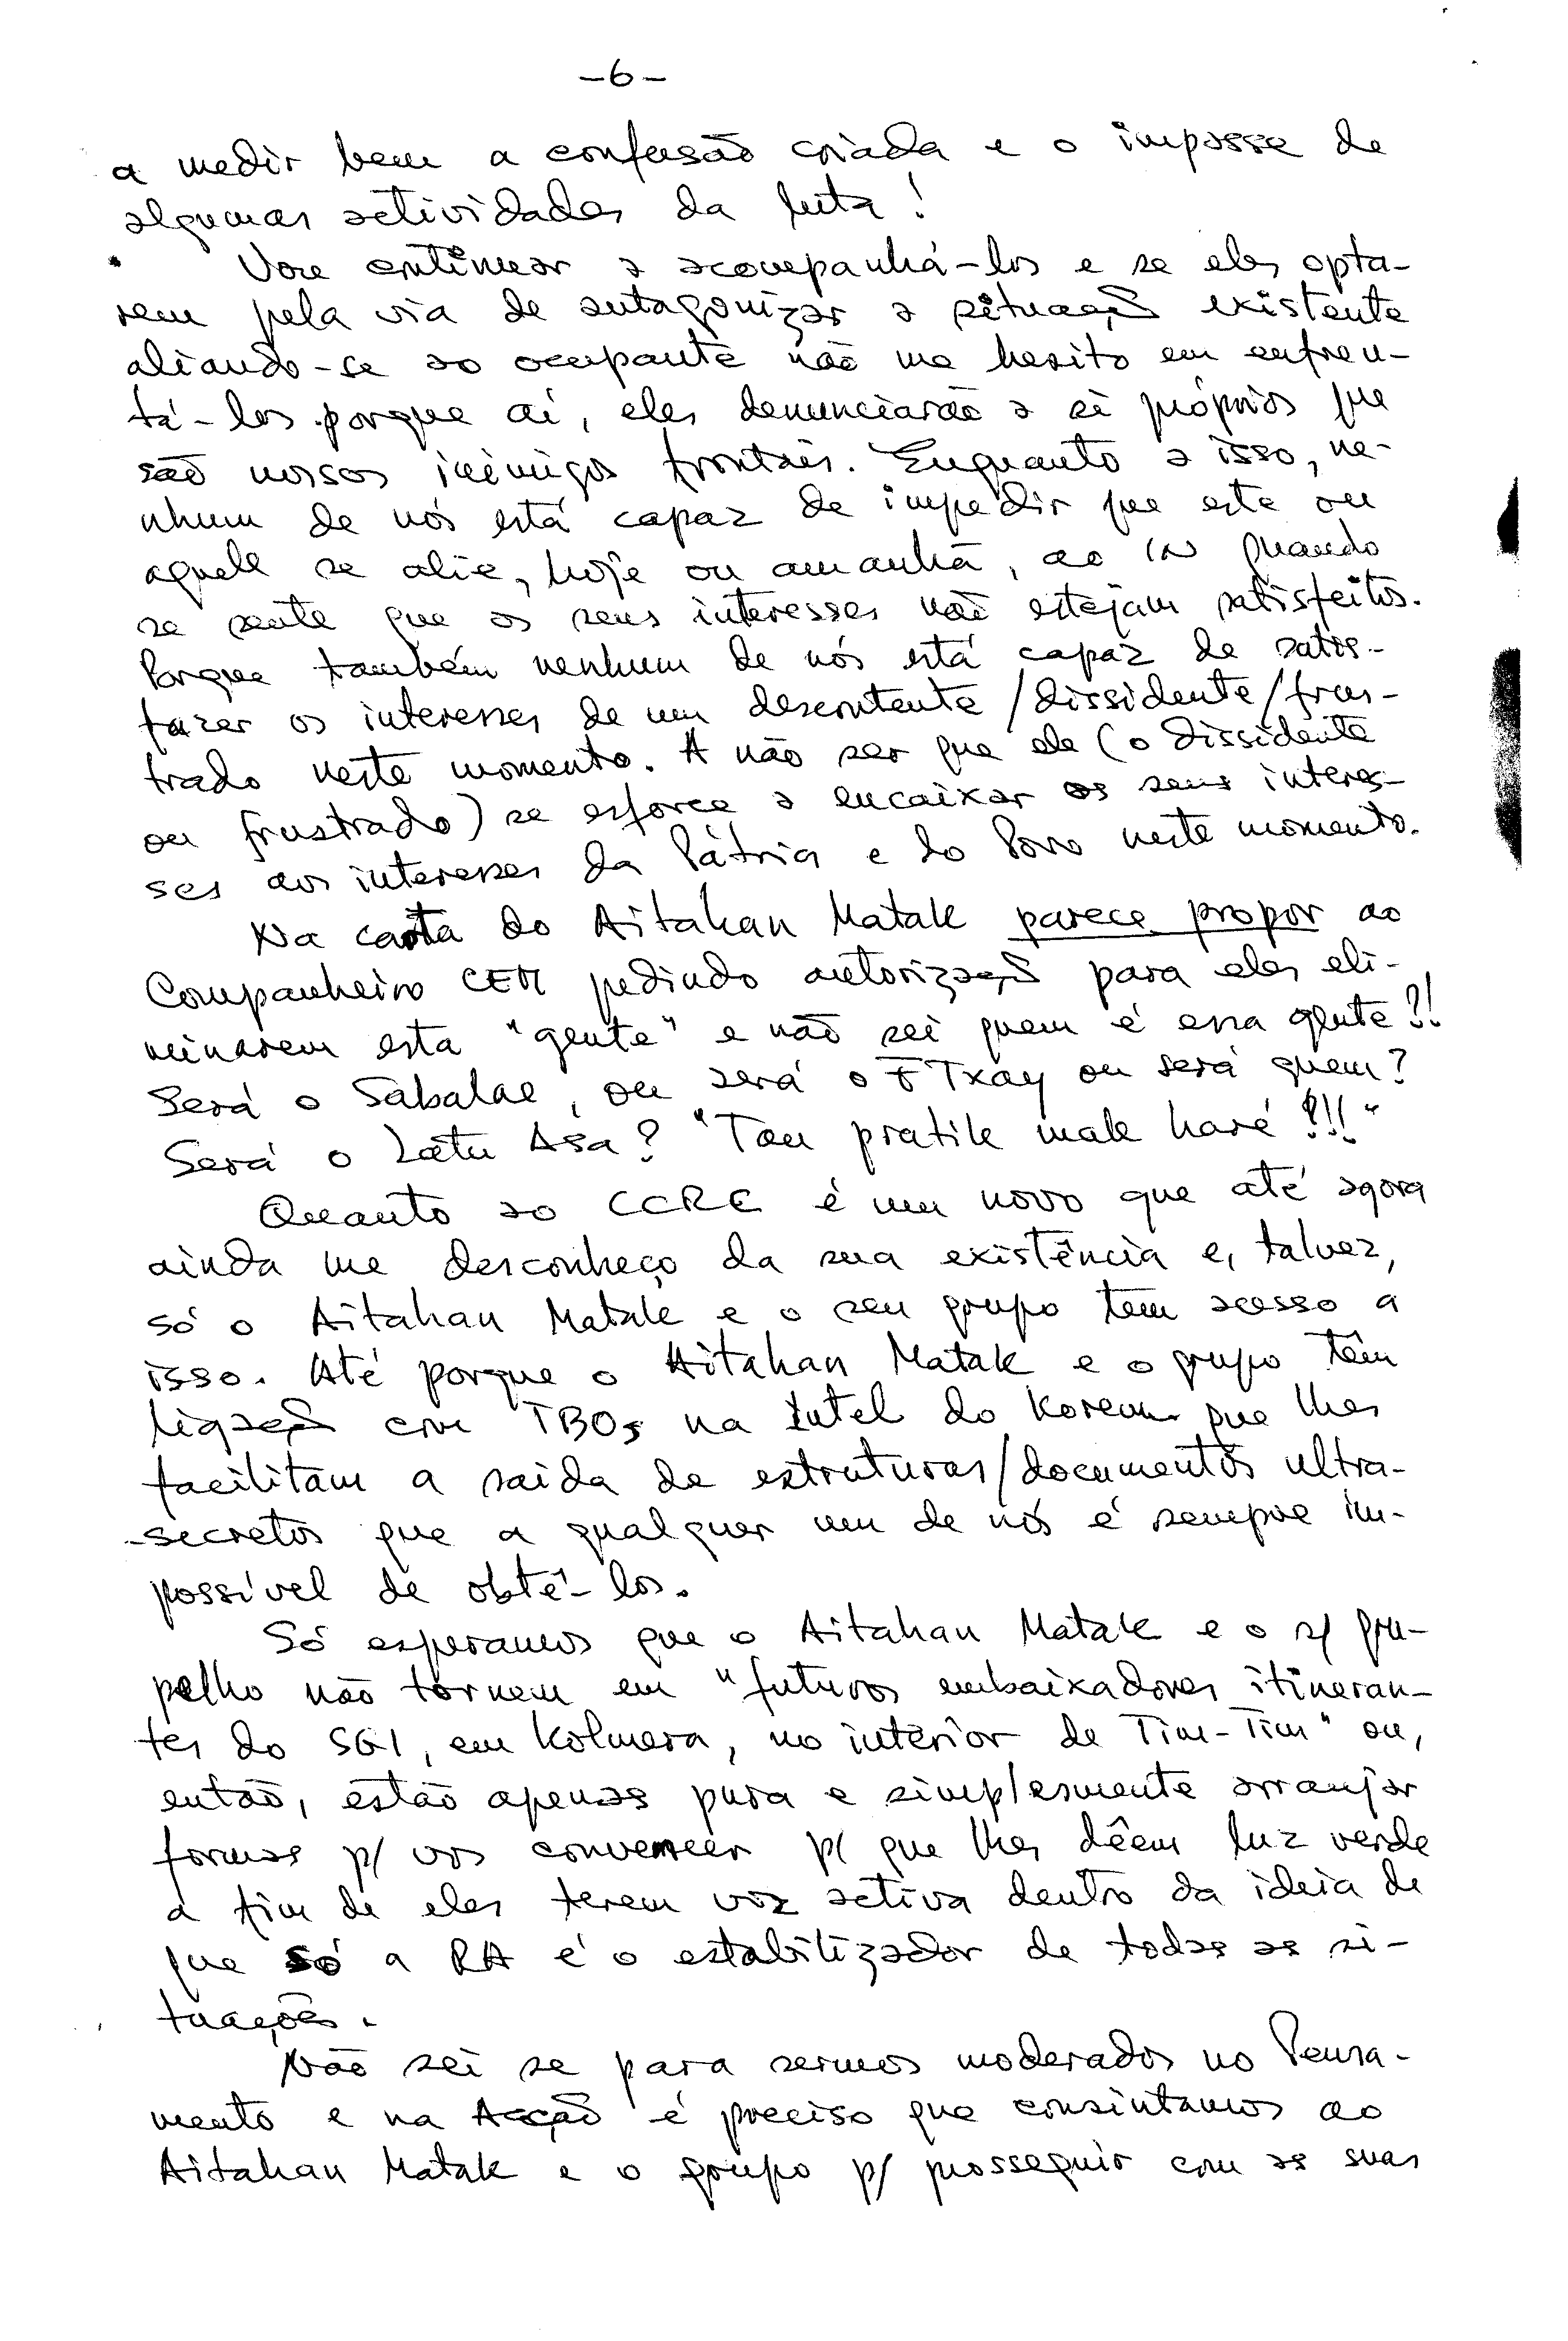 -6-
a medir bem a confusão criada e o impasse de
algumas actividades da luta!
Vou continuar a acompanhá-los e se eles opta-
rem pela via de antagonizar a situação existente
aliando-se ao ocupante não me hesito em enfren-
tá-los porque aí, eles denunciarão a si próprios que
são nossos inimigos frontais. Enquanto a isso, ne-
nhum de nós está capaz de impedir que este ou
aquele se alie, hoje ou amanhã, ao IN quando
se sente que os seus interesses não estejam satisfeitos.
Porque também nenhum de nós está capaz de satis-
fazer os interesses de um descontente/dissidente/frus-
trado neste momento. A não ser que ele (o dissidente
ou frustrado) se esforce a encaixar os seus interes-
ses aos interesses da Pátria e do Povo neste momento.
Na carta do Aitahan Matak parece propor ao
Companheiro CEM pedindo autorização para eles eli-
minarem esta "gente" e não sei quem é essa gente?!
Será o Sabalae, ou será o F Txay ou será quem?
Será o Lætu Asa? "Tau pratik mak haré?!!"
Quanto ao CCRE é um novo que até agora
ainda me desconheço da sua existência e, talvez,
só o Aitahan Matak e o seu grupo tem acesso a
isso. Até porque o Aitahan Matak e o grupo têm
ligação com TBOs na Intel do Korem que lhes
facilitam a saida de estruturas/documentos ultra-
-secretos que a qualquer um de nós é sempre im-
possível de obtê-los.
Só esperamos que o Aitahan Matak e o s/ gru-
pelho não tornem em "futuros embaixadores itineran-
tes do SGI, em Kolmera, no interior de Tim-Tim" ou,
então, estão apenas pura e simplesmente arranjar
formas p/ vos convencer p/ que lhes dêem luz verde
a fim de eles terem voz activa dentro da ideia de
que só a RA é o estabilizador de todas as si-
tuações.
Não sei se para sermos moderados no Pensa-
mento e na Acção é preciso que consintamos ao
Aitahan Matak e o grupo p/ prosseguir com as suas